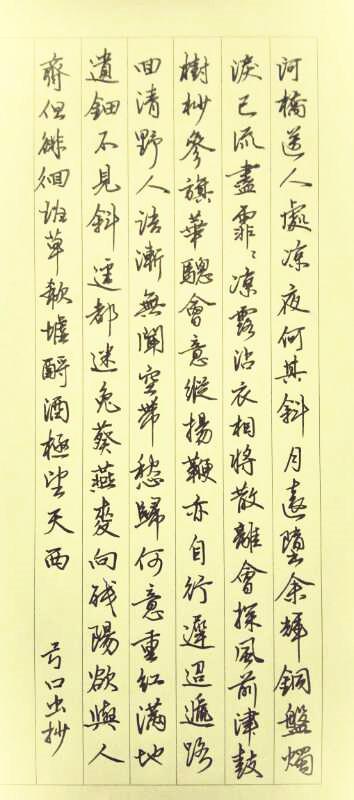 河橋送人處涼夜何其斜月遠墮余輝銅盤燭
淚已流盡霏〻涼露沾衣相將散離會探風前津鼓
樹杪參旗華驄會意縱揚鞭亦自行遲迢遞路
回清野人語漸無聞空帶愁歸何意重紅滿地
遺鈿不見斜逕都迷兔葵燕麥向殘陽欲與人
齊但徘徊班草欷歔酹酒極望天西 弓口虫抄